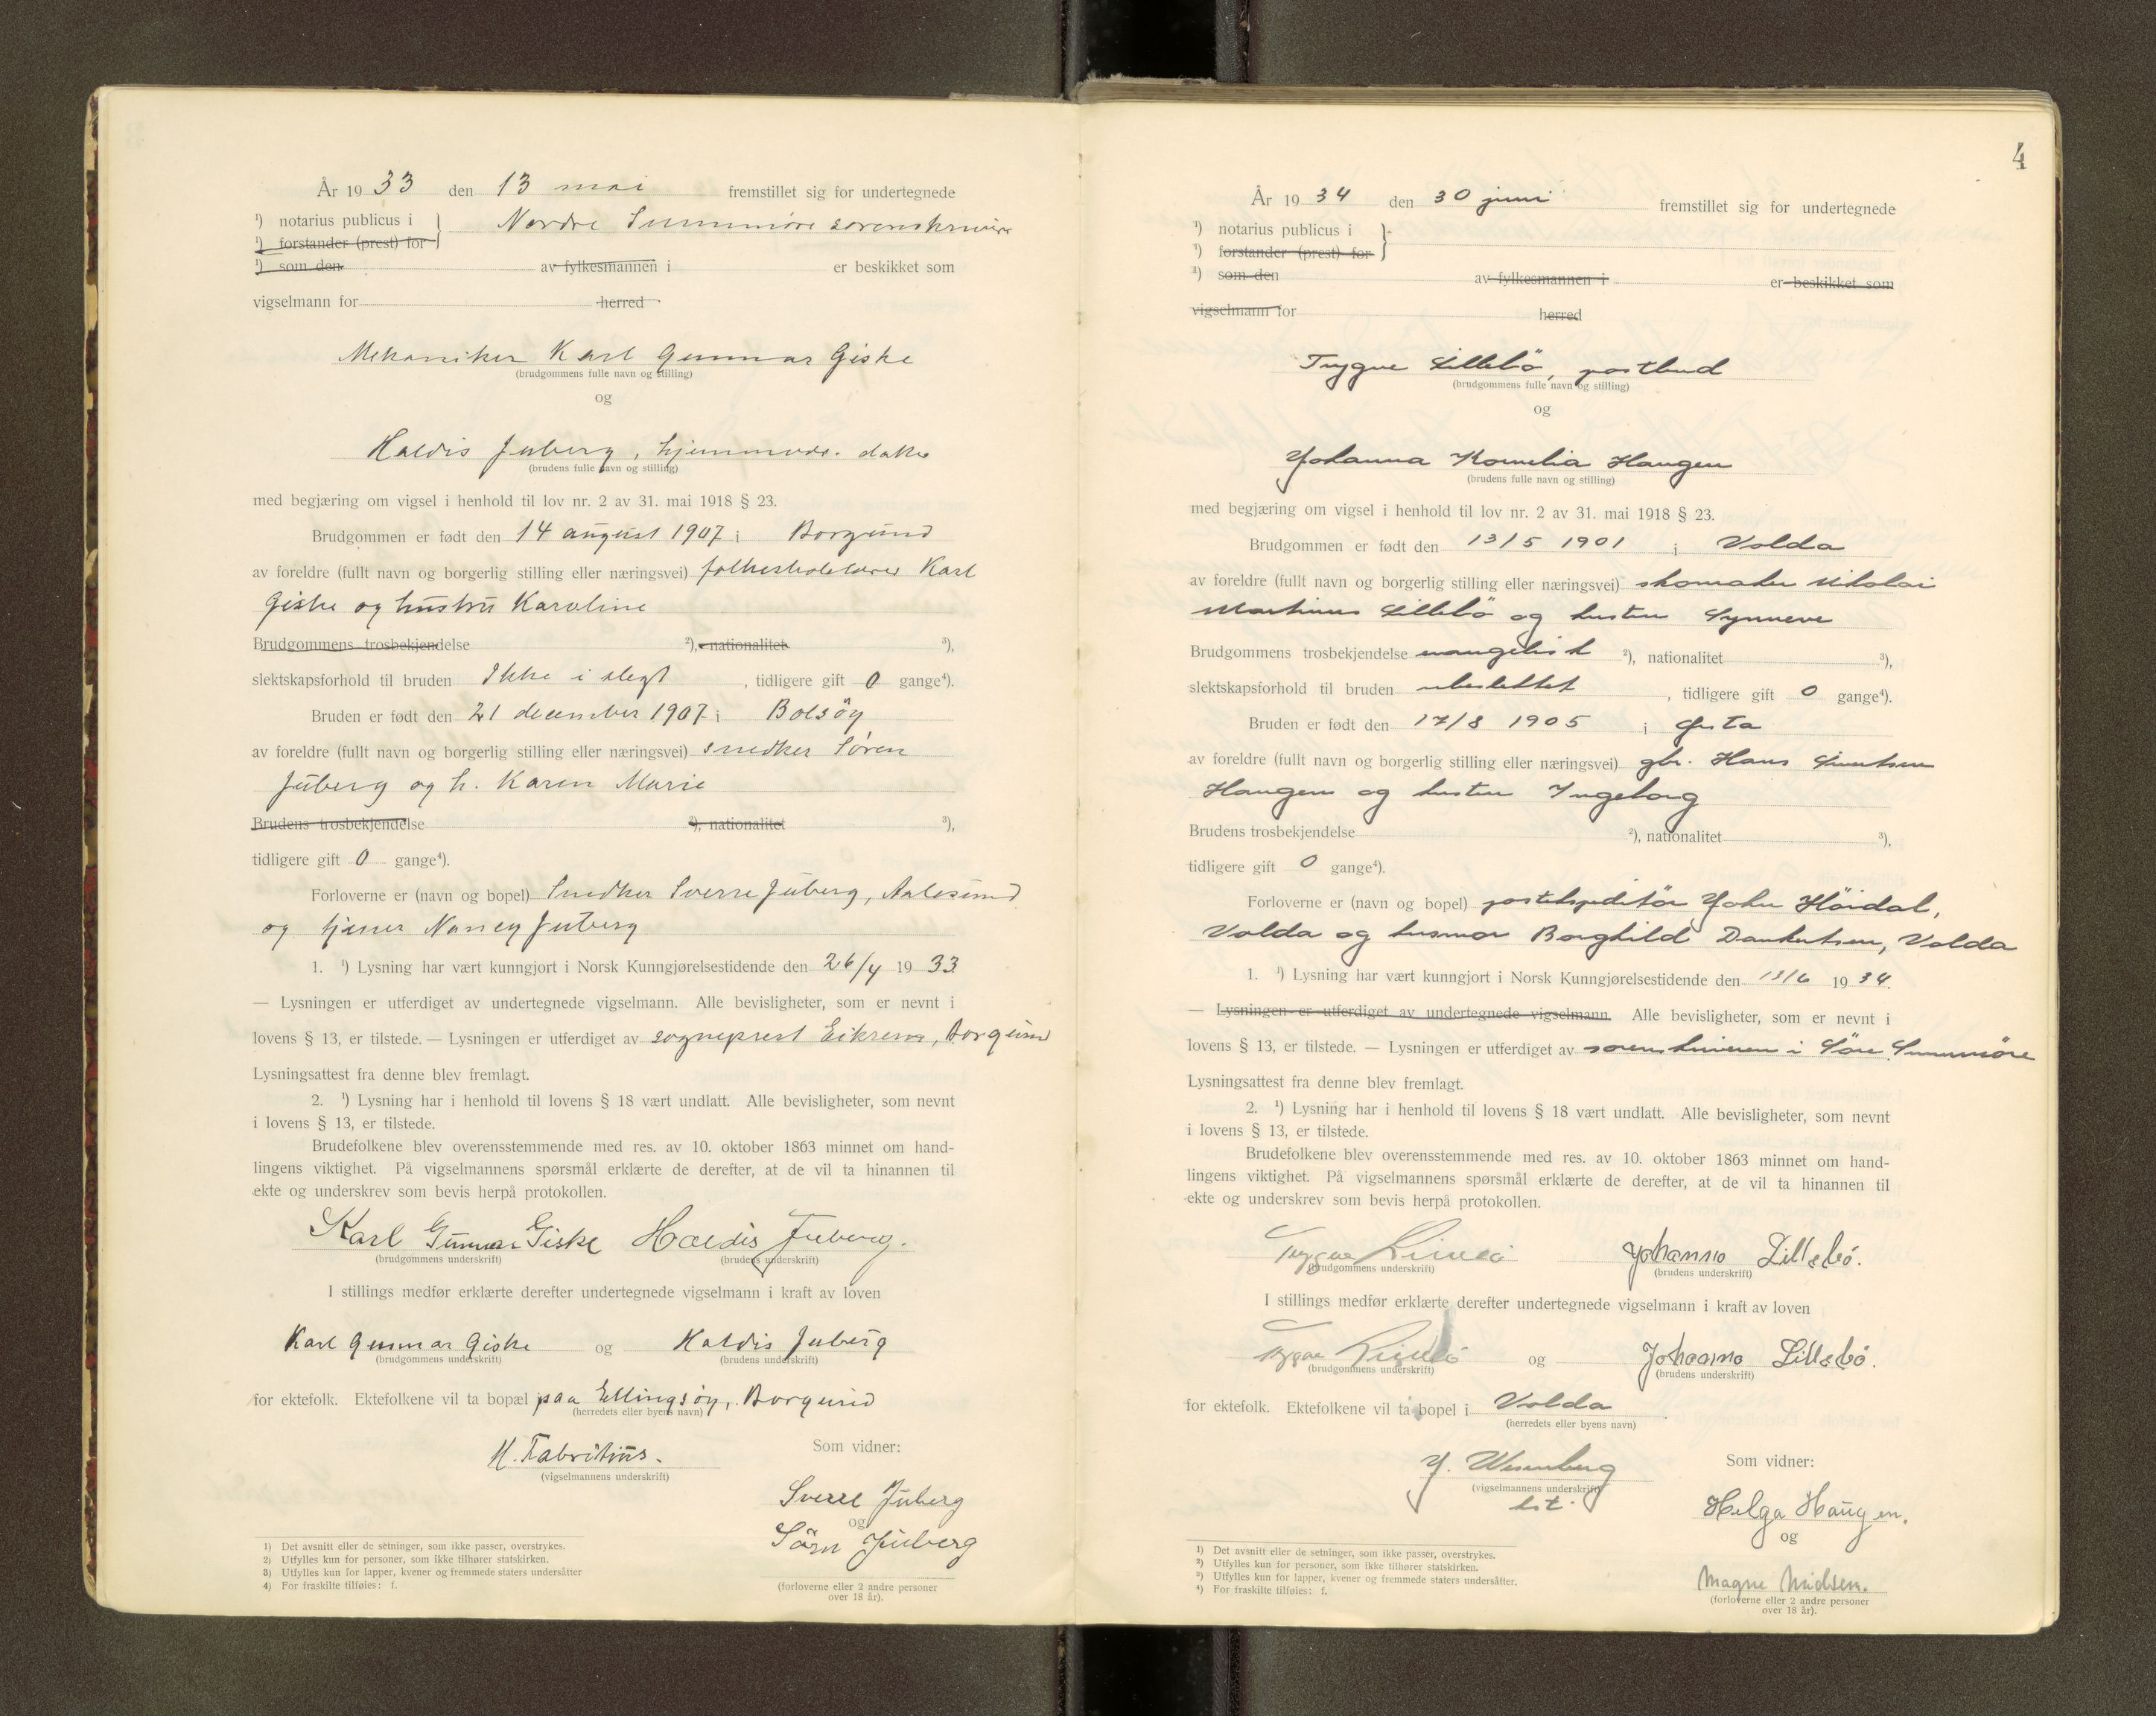 År 19 33 den 13 mai fremstillet sig for undertegnede
¹) notarius publicus i } Nordre Sunnmöre sorenskriveri
¹) forstander (prest) for
¹) som den av fylkesmannen i er beskikket som
vigselmann for herred
Mekaniker Karl Gunnar Giske
(brudgommens fulle navn og stilling)
og
Haldis Juberg, hjemmevær. datter
(brudens fulle navn og stilling)
med begjæring om vigsel i henhold til lov nr. 2 av 31. mai 1918 § 23.
Brudgommen er født den 14 august 1907 i Borgund
av foreldre (fullt navn og borgerlig stilling eller næringsvei) folkeskolelærer Karl
Giske og hustru Karoline
Brudgommens trosbekjendelse ²), nationalitet ³),
slektskapsforhold til bruden Ikke i slegt, tidligere gift 0 gange⁴).
Bruden er født den 21 december 1907 i Bolsöy
av foreldre (fullt navn og borgerlig stilling eller næringsvei) snedker Sören
Juberg og h. Karen Marie
Brudens trosbekjendelse ²), nationalitet ³),
tidligere gift 0 gange⁴).
Forloverne er (navn og bopel) Snedker Sverre Juberg, Aalesund
og Nancy Juberg
1. ¹) Lysning har vært kunngjort i Norsk Kunngjørelsestidende den 26/4 19 33
— Lysningen er utferdiget av undertegnede vigselmann. Alle bevisligheter, som er nevnt i
lovens § 13, er tilstede. — Lysningen er utferdiget av sogneprest Eikrem, Borgund
Lysningsattest fra denne blev fremlagt.
2. ¹) Lysning har i henhold til lovens § 18 vært undlatt. Alle bevisligheter, som nevnt
i lovens § 13, er tilstede.
Brudefolkene blev overensstemmende med res. av 10. oktober 1863 minnet om hand-
lingens viktighet. På vigselmannens spørsmål erklærte de derefter, at de vil ta hinannen til
ekte og underskrev som bevis herpå protokollen.
Karl Gunnar Giske Haldis Juberg.
(brudgommens underskrift) (brudens underskrift)
I stillings medfør erklærte derefter undertegnede vigselmann i kraft av loven
Karl Gunnar Giske og Haldis Juberg
(brudgommens underskrift) (brudens underskrift)
for ektefolk. Ektefolkene vil ta bopæl paa Ellingsöy, Borgund
(herredets eller byens navn)
H. Fabritius.
(vigselmannens underskrift)
Som vidner:
Sverre Juberg
og
Sörn Juberg
(forloverne eller 2 andre personer
over 18 år).
1) Det avsnitt eller de setninger, som ikke passer, overstrykes.
2) Utfylles kun for personer, som ikke tilhører statskirken.
3) Utfylles kun for lapper, kvener og fremmede staters undersåtter
4) For fraskilte tilføies: f.
4
År 19 34 den 30 juni fremstillet sig for undertegnede
¹) notarius publicus i }
¹) forstander (prest) for
¹) som den av fylkesmannen i er beskikket som
vigselmann for herred
Trygve Lillebö, postbud
(brudgommens fulle navn og stilling)
og
Johanna Kornelia Haugen
(brudens fulle navn og stilling)
med begjæring om vigsel i henhold til lov nr. 2 av 31. mai 1918 § 23.
Brudgommen er født den 13/5 1901 i Volda
av foreldre (fullt navn og borgerlig stilling eller næringsvei) skomaker Nikolai
Martinus Lillebö og hustru Synneve
Brudgommens trosbekjendelse evangelisk ²), nationalitet ³),
slektskapsforhold til bruden ubeslektet, tidligere gift 0 gange⁴).
Bruden er født den 17/8 1905 i Örsta
av foreldre (fullt navn og borgerlig stilling eller næringsvei) gbr. Hans
Haugen og hustru Ingeborg
Brudens trosbekjendelse ²), nationalitet ³),
tidligere gift 0 gange⁴).
Forloverne er (navn og bopel) postekspeditör John Höidal,
Volda og husmor Borghild Dankertsen, Volda
1. ¹) Lysning har vært kunngjort i Norsk Kunngjørelsestidende den 13/6 19 34.
— Lysningen er utferdiget av undertegnede vigselmann. Alle bevisligheter, som er nevnt i
lovens § 13, er tilstede. — Lysningen er utferdiget av sorenskriveren i Söre Sunnmöre
Lysningsattest fra denne blev fremlagt.
2. ¹) Lysning har i henhold til lovens § 18 vært undlatt. Alle bevisligheter, som nevnt
i lovens § 13, er tilstede.
Brudefolkene blev overensstemmende med res. av 10. oktober 1863 minnet om hand-
lingens viktighet. På vigselmannens spørsmål erklærte de derefter, at de vil ta hinannen til
ekte og underskrev som bevis herpå protokollen.
Trygve Lillebö Johanna Lillebö.
(brudgommens underskrift) (brudens underskrift)
I stillings medfør erklærte derefter undertegnede vigselmann i kraft av loven
Trygve Lillebö og Johanna Lillebö.
(brudgommens underskrift) (brudens underskrift)
for ektefolk. Ektefolkene vil ta bopel i Volda
(herredets eller byens navn)
J. Wesenberg
(vigselmannens underskrift)
cst.
Som vidner:
Helga Haugen.
og
Magne
(forloverne eller 2 andre personer
over 18 år).
¹) Det avsnitt eller de setninger, som ikke passer, overstrykes.
²) Utfylles kun for personer, som ikke tilhører statskirken.
³) Utfylles kun for lapper, kvener og fremmede staters undersåtter.
⁴) For fraskilte tilføies: f.